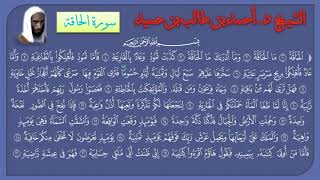 الشيخ د. أحمد بن طالب بن حميد
سورة الحاقة
بِسْمِ اللَّهِ الرَّحْمَٰنِ الرَّحِيمِ
الْحَاقَّةُ ۝ مَا الْحَاقَّةُ ۝ وَمَا أَدْرَاكَ مَا الْحَاقَّةُ ۝ كَذَّبَتْ ثَمُودُ وَعَادٌ بِالْقَارِعَةِ ۝ فَأَمَّا ثَمُودُ فَأُهْلِكُوا بِالطَّاغِيَةِ ۝ وَأَمَّا
عَادٌ فَأُهْلِكُوا بِرِيحٍ صَرْصَرٍ عَاتِيَةٍ ۝ سَخَّرَهَا عَلَيْهِمْ سَبْعَ لَيَالٍ وَثَمَانِيَةَ أَيَّامٍ حُسُومًا فَتَرَى الْقَوْمَ فِيهَا صَرْعَىٰ كَأَنَّهُمْ أَعْجَازُ نَخْلٍ خَاوِيَةٍ
۝ فَهَلْ تَرَىٰ لَهُمْ مِنْ بَاقِيَةٍ ۝ وَجَاءَ فِرْعَوْنُ وَمَنْ قَبْلَهُ وَالْمُؤْتَفِكَاتُ بِالْخَاطِئَةِ ۝ فَعَصَوْا رَسُولَ رَبِّهِمْ فَأَخَذَهُمْ أَخْذَةً
رَابِيَةً ۝ إِنَّا لَمَّا طَغَا الْمَاءُ حَمَلْنَاكُمْ فِي الْجَارِيَةِ ۝ لِنَجْعَلَهَا لَكُمْ تَذْكِرَةً وَتَعِيَهَا أُذُنٌ وَاعِيَةٌ ۝ فَإِذَا نُفِخَ فِي الصُّورِ نَفْخَةٌ
وَاحِدَةٌ ۝ وَحُمِلَتِ الْأَرْضُ وَالْجِبَالُ فَدُكَّتَا دَكَّةً وَاحِدَةً ۝ فَيَوْمَئِذٍ وَقَعَتِ الْوَاقِعَةُ ۝ وَانْشَقَّتِ السَّمَاءُ فَهِيَ يَوْمَئِذٍ
وَاهِيَةٌ ۝ وَالْمَلَكُ عَلَىٰ أَرْجَائِهَا وَيَحْمِلُ عَرْشَ رَبِّكَ فَوْقَهُمْ يَوْمَئِذٍ ثَمَانِيَةٌ ۝ يَوْمَئِذٍ تُعْرَضُونَ لَا تَخْفَىٰ مِنْكُمْ خَافِيَةٌ ۝
فَأَمَّا مَنْ أُوتِيَ كِتَابَهُ بِيَمِينِهِ فَيَقُولُ هَاؤُمُ اقْرَءُوا كِتَابِيَهْ ۝ إِنِّي ظَنَنْتُ أَنِّي مُلَاقٍ حِسَابِيَهْ ۝ فَهُوَ فِي عِيشَةٍ رَاضِيَةٍ ۝